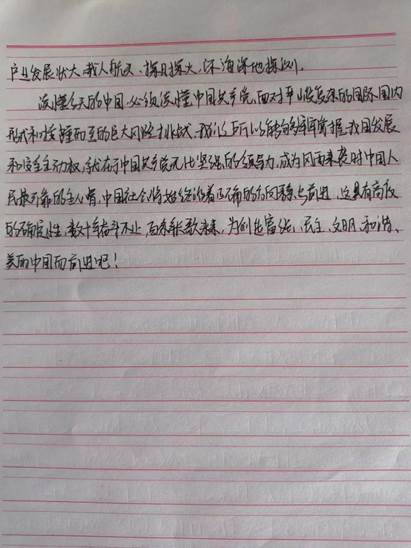 产业发展壮大,载人航天、探月探火、深海深地探测。
读懂今天的中国,必须读懂中国共产党,面对严峻复杂的国际国内
形式和接踵而至的巨大风险挑战,我们之所以能够牢牢掌握我国发展
和安全主动权,就在于中国共产党无比坚强的领导力,成为风雨来袭时中国人
民最可靠的主心骨,中国社会将始终沿着正确的方向稳步前进,这具有高度
的确定性。数十年奋斗不止,百年
未来,为创造富强、民主、文明、和谐、
美丽中国而前进吧!